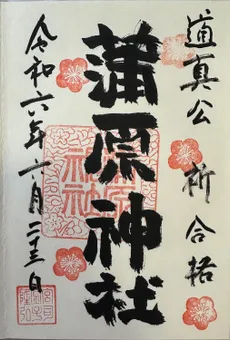 道真公 祈合格
蒲原神社
令和六年六月二十三日